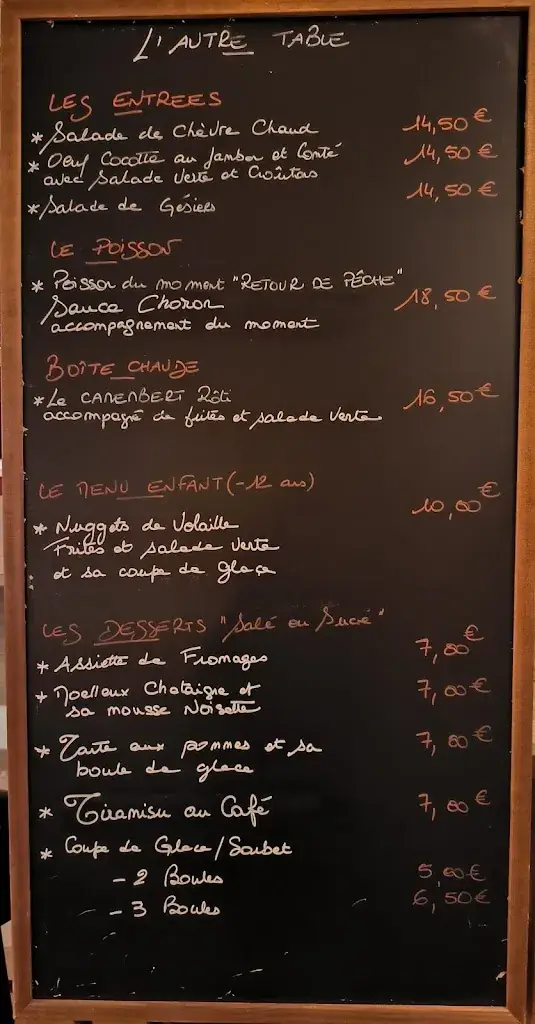 L'AUTRE TABLE
LES ENTREES
* Salade de Chèvre Chaud 14,50 €
* Oeuf Cocotte au Jambon et Comté 14,50 €
avec Salade Verte et Croûtons
* Salade de Gésiers 14,50 €
LE POISSON
* Poisson du moment "RETOUR DE PÊCHE"
Sauce Choron 18,50 €
accompagnement du moment
BOÎTE CHAUDE
* Le CAMEMBERT Rôti 16,50 €
accompagné de frites et salade verte
LE MENU ENFANT (-12 ans)
10,00 €
* Nuggets de Volaille
Frites et salade verte
et sa coupe de glace
LES DESSERTS "Salé ou Sucré"
* Assiette de Fromages 7,00 €
* Moelleux Chataigne et 7,00 €
sa mousse Noisette
* Tarte aux pommes et sa 7,00 €
boule de glace
* Tiramisu au Café 7,00 €
* Coupe de Glace/Sorbet
- 2 Boules 5,00 €
- 3 Boules 6,50 €